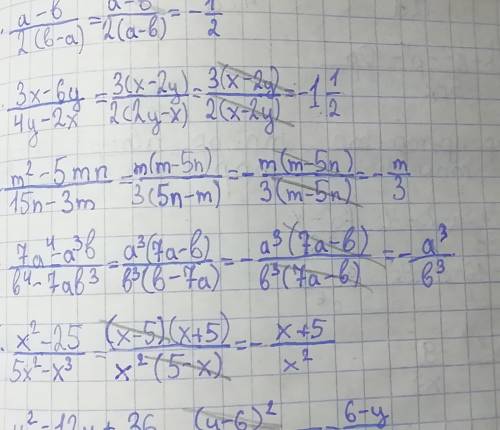 (a-b)/(2(b-a)) = (a-b)/(2(a-b)) = -1/2
(3x-6y)/(4y-2x) = 3(x-2y)/(2(2y-x)) = 3(x-2y)/(2(x-2y)) = -1 1/2
(m²-5mn)/(15n-3m) = m(m-5n)/(3(5n-m)) = -m(m-5n)/(3(m-5n)) = -m/3
(7a⁴-a³b)/(b⁴-7ab³) = a³(7a-b)/(b³(b-7a)) = -a³(7a-b)/(b³(7a-b)) = -a³/b³
(x²-25)/(5x²-x³) = (x-5)(x+5)/(x²(5-x)) = -(x+5)/x²
y²-12y+36 (y-6)² 6-y